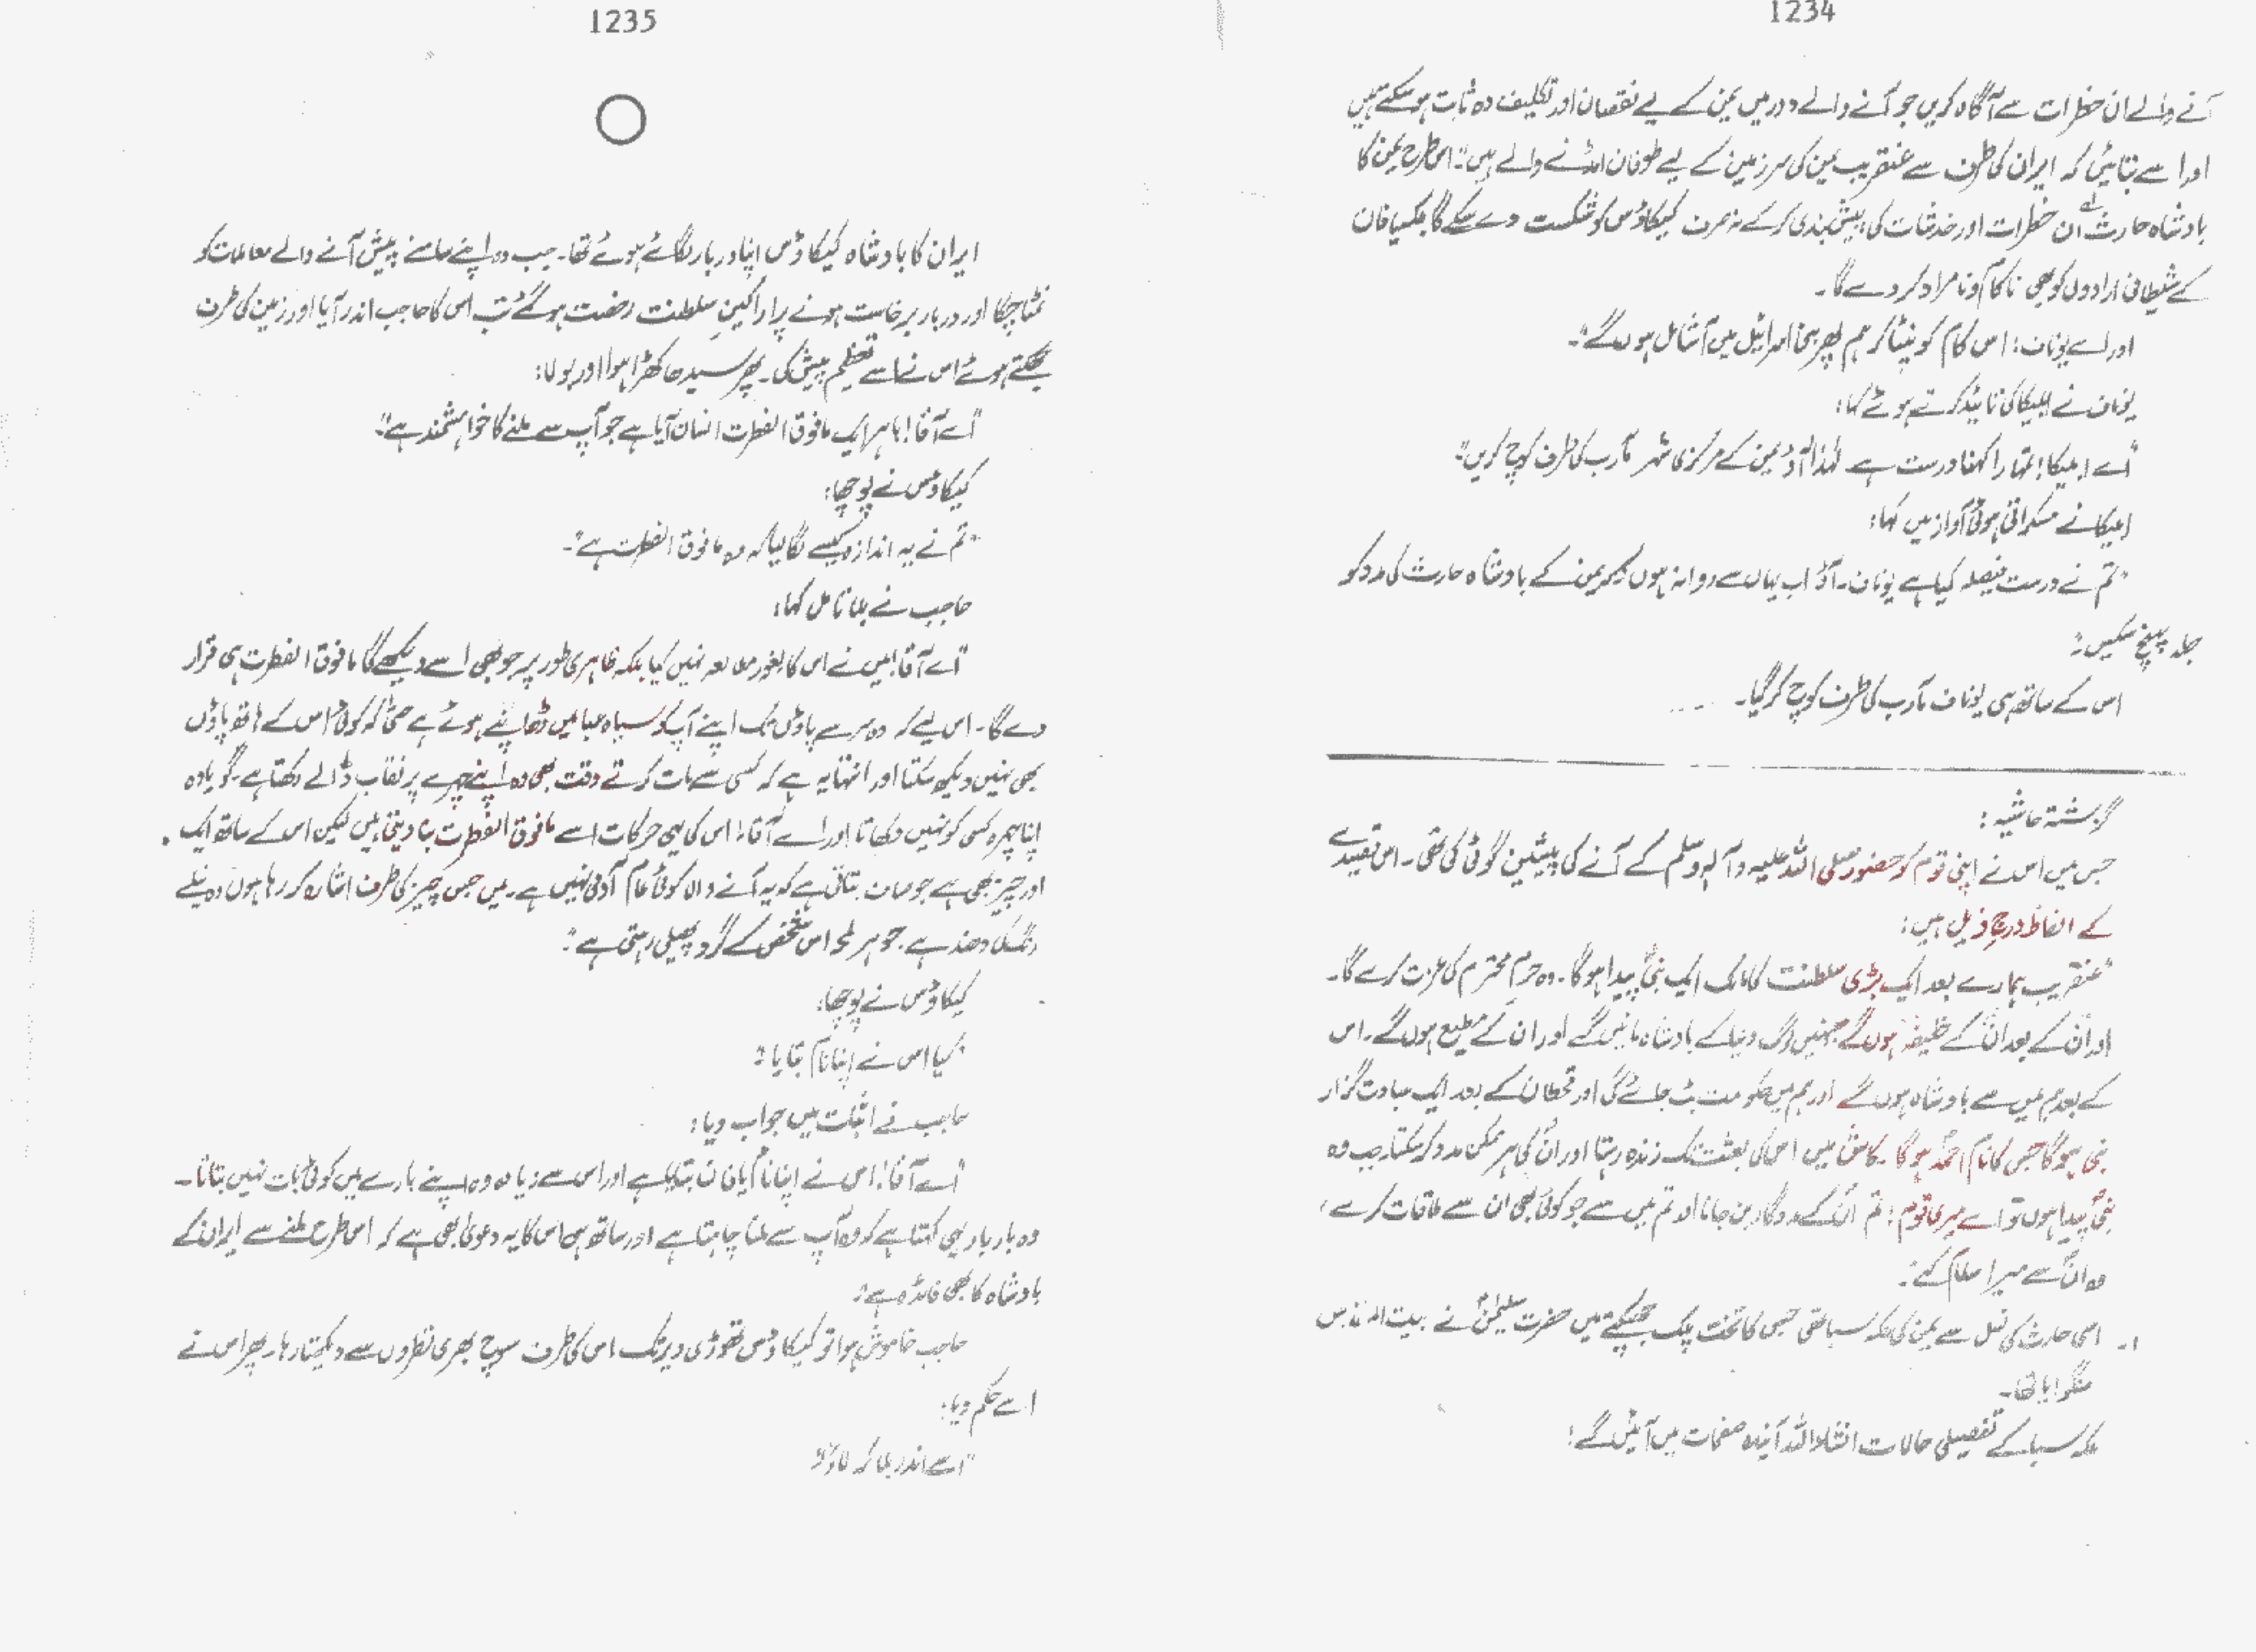 1234
آنے والے ان خطرات سے آگاہ کریں جو آنے والے دور میں یمن کے لیے نقصان اور تکلیف دہ ثابت ہو سکتے ہیں
اور اسے بتائیں کہ ایران کی طرف سے عنقریب یمن کی سرزمین کے لیے طوفان امڈنے والے ہیں۔ اس طرح یمن کا
بادشاہ حارث ان خطرات اور خدشات کی پیش بندی کرکے نہ صرف کیکاؤس کو شکست دے سکے گا بلکہ یافان
کے شیطانی ارادوں کو بھی ناکام و نامراد کر دے گا۔
اور اے یوناف! اس کام کو نپٹا کر ہم پھر بنی اسرائیل میں آ شامل ہوں گے"۔
یوناف نے ابلیکا کی تائید کرتے ہوئے کہا:
"اے ابلیکا! تمہارا کہنا درست ہے لہٰذا آؤ یمن کے مرکزی شہر مآرب کی طرف کوچ کریں"۔
ابلیکا نے مسکراتی ہوئی آواز میں کہا:
"تم نے درست فیصلہ کیا ہے یوناف۔ آؤ اب یہاں سے روانہ ہوں کہ یمن کے بادشاہ حارث کی مدد کو
جلد پہنچ سکیں"۔
اس کے ساتھ ہی یوناف مآرب کی طرف کوچ کر گیا۔
گزشتہ حاشیہ:
جس میں اس نے اپنی قوم کو حضور صلی اللہ علیہ وآلہ وسلم کے آنے کی پیشین گوئی کی تھی۔ اس قصیدے
کے الفاظ درج ذیل ہیں:
"عنقریب ہمارے بعد ایک بڑی سلطنت کا مالک ایک نبیؐ پیدا ہوگا۔ وہ حرم محترم کی عزت کرے گا۔
اور انؐ کے بعد انؐ کے خلیفہ ہوں گے جنہیں لوگ دنیا کے بادشاہ مانیں گے اور ان کے مطیع ہوں گے۔ اس
کے بعد ہم میں سے بادشاہ ہوں گے اور ہم میں حکومت بٹ جائے گی اور قحطان کے بعد ایک عبادت گزار
نبی ہوگا جس کا نام احمدؐ ہوگا۔ کاش میں اس کی بعثت تک زندہ رہتا اور انؐ کی ہر ممکن مدد کر سکتا۔ جب وہ
نبیؐ پیدا ہوں تو اے میری قوم! تم انؐ کے مددگار بن جانا اور تم میں سے جو کوئی بھی ان سے ملاقات کرے،
وہ انؐ سے میرا سلام کہے"۔
۱۔ اسی حارث کی نسل سے یمن کی ملکہ سبا تھی جس کا تخت پلک جھپکتے میں حضرت سلیمانؑ نے بیت المقدس
منگوایا تھا۔
ملکہ سبا کے تفصیلی حالات انشاء اللہ آیندہ صفحات میں آئیں گے!
1235
ایران کا بادشاہ کیکاؤس اپنا دربار لگائے ہوئے تھا۔ جب وہ اپنے سامنے پیش آنے والے معاملات کو
نمٹا چکا اور دربار برخاست ہونے پر اراکین سلطنت رخصت ہو گئے تب اس کا حاجب اندر آیا اور زمین کی طرف
جھکتے ہوئے اس نے اسے تعظیم پیش کی۔ پھر سیدھا کھڑا ہوا اور بولا:
"اے آقا! باہر ایک مافوق الفطرت انسان آیا ہے جو آپ سے ملنے کا خواہشمند ہے"۔
کیکاؤس نے پوچھا:
"تم نے یہ اندازہ کیسے لگا لیا کہ وہ مافوق الفطرت ہے"۔
حاجب نے بلا تامل کہا:
"اے آقا! میں نے اس کا بغور مطالعہ نہیں کیا بلکہ ظاہری طور پر جو بھی اسے دیکھے گا مافوق الفطرت ہی قرار
دے گا۔ اس لیے کہ وہ سر سے پاؤں تک اپنے آپ کو سیاہ عبا میں ڈھانپے ہوئے ہے حتیٰ کہ کوئی اس کے ہاتھ پاؤں
بھی نہیں دیکھ سکتا اور انتہا یہ ہے کہ کسی سے بات کرتے وقت بھی وہ اپنے چہرے پر نقاب ڈالے رکھتا ہے۔ گویا وہ
اپنا چہرہ کسی کو نہیں دکھاتا اور اے آقا! اس کی یہی حرکات اسے مافوق الفطرت بنا دیتی ہیں لیکن اس کے ساتھ ایک
اور چیز بھی ہے جو صاف بتاتی ہے کہ یہ آنے والا کوئی عام آدمی نہیں ہے۔ میں جس چیز کی طرف اشارہ کر رہا ہوں وہ نیلے
رنگ کی دھند ہے جو ہر لمحہ اس شخص کے گرد پھیلی رہتی ہے"۔
کیکاؤس نے پوچھا:
"کیا اس نے اپنا نام بتایا"؟
حاجب نے اثبات میں جواب دیا:
"اے آقا! اس نے اپنا نام یافان بتایا ہے اور اس سے زیادہ وہ اپنے بارے میں کوئی بات نہیں بتاتا۔
وہ بار بار یہی کہتا ہے کہ وہ آپ سے ملنا چاہتا ہے اور ساتھ ہی اس کا یہ دعویٰ بھی ہے کہ اس طرح ملنے سے ایران کے
بادشاہ کا بھی فائدہ ہے"۔
حاجب خاموش ہوا تو کیکاؤس تھوڑی دیر تک اس کی طرف سوچ بھری نظروں سے دیکھتا رہا۔ پھر اس نے
اسے حکم دیا:
"اسے اندر بلا کر لاؤ"۔